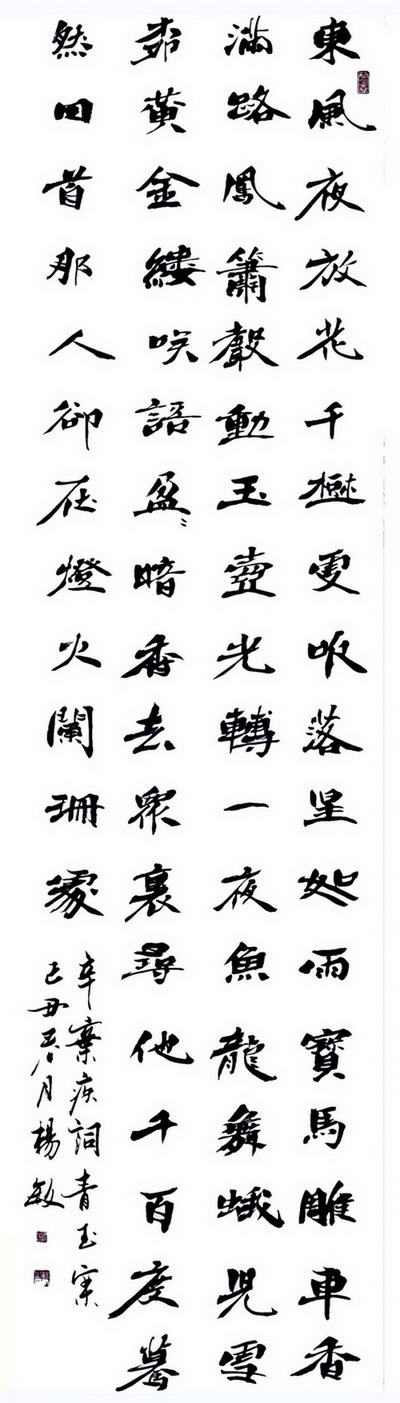 東風夜放花千樹更吹落星如雨寶馬雕車香
滿路鳳簫聲動玉壺光轉一夜魚龍舞蛾兒雪
柳黃金縷咲語盈〻暗香去眾裏尋他千百度驀
然回首那人卻在燈火闌珊處
辛棄疾詞青玉案
己丑春月楊敏